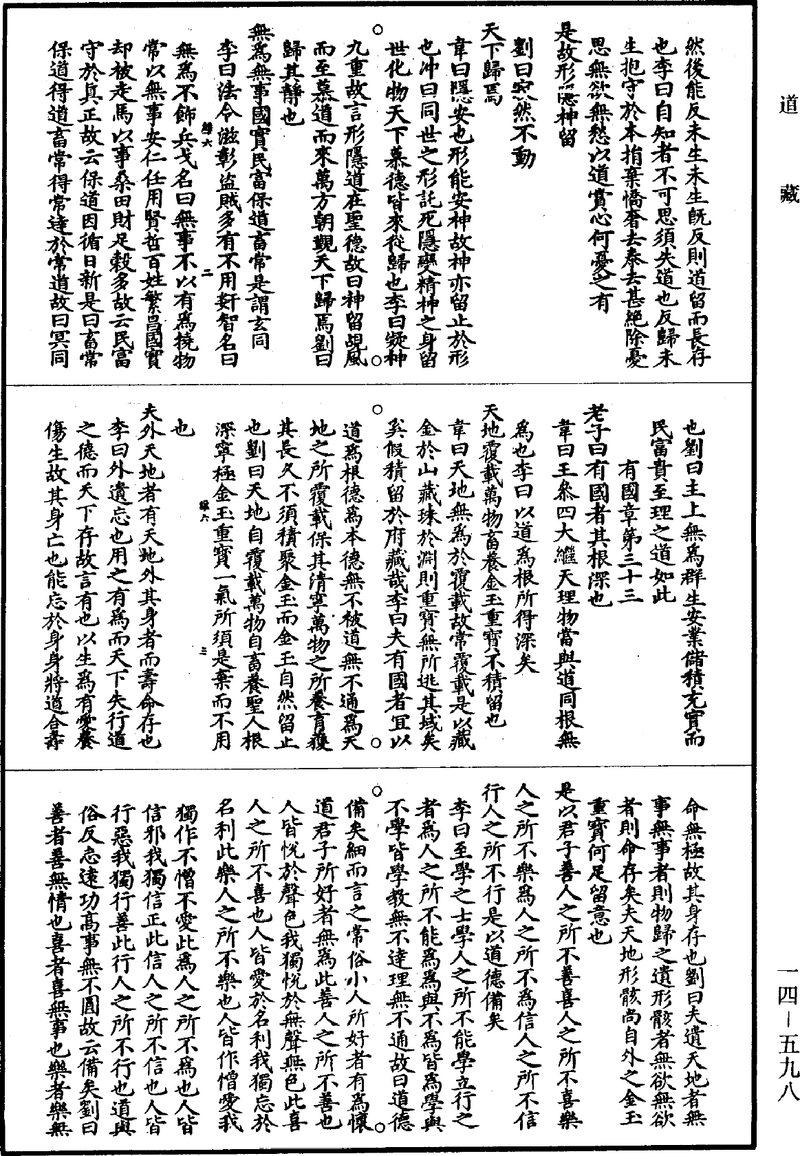 道藏
然後能反未生未生既反則道留而長存
也李曰自知者不可思須失道也反歸未
生抱守於本捐棄憍奢去泰去甚絶除憂
思無欲無愁以道賞心何憂之有
是故形隱神留
劉曰寂然不動
天下歸焉
韋曰隱安也形能安神故神亦留止於形
也沖曰同世之形託死隱變精神之身留
世化物天下慕德皆來從歸也李曰凝神
九重故言形隱道在聖德故曰神留覩風
而至慕道而來萬方朝觀天下歸焉劉曰
歸其靜也
無爲無事國實民富保道畜常是謂玄同
李曰法令滋彰盜賊多有不用姧智名曰
無爲不飾兵戈名曰無事不以有爲撓物
常以無事安仁任用賢哲百姓繁昌國寶
却被走馬以事桑田財足穀多故云民富
守於真正故云保道因循日新是曰畜常
保道得道畜常得常達於常道故曰冥同
也劉曰主上無爲群生安業儲積充實而
民富貴至理之道如此
有國章第三十三
老子曰有國者其根深也
韋曰王叅四大繼天理物當與道同根無
爲也李曰以道爲根所得深矣
天地覆載萬物畜養金玉重寶不積留也
韋曰天地無爲於覆載故常覆載是以藏
金於山藏珠於淵則重寶無所逃其域矣
奚假積留於府藏哉李曰夫有國者宜以
道爲根德爲本德無不被道無不通爲天
地之所覆載保其清寧萬物之所養育獲
其長久不須積聚金玉而金玉自然留止
也劉曰天地自覆載萬物自畜養聖人根
深寧極金玉重寶一氣所須是棄而不用
也
夫外天地者有天地外其身者而壽命存也
李曰外遺忘也用之有爲而天下失行道
之德而天下存故言有也以生爲有愛養
傷生故其身亡也能忘於身身將道合壽
命無極故其身存也劉曰夫遺天地者無
事無事者則物歸之遺形骸者無欲無欲
者則命存矣夫天地形骸尚自外之金玉
重寶何足留意也
是以君子善人之所不善喜人之所不喜樂
人之所不樂爲人之所不爲信人之所不信
行人之所不行是以道德備矣
李曰至學之士學人之所不能學立行之
者爲人之所不能爲爲與不爲皆爲學與
不學皆學教無不達理無不通故曰道德
備矣細而言之常俗小人所好者有爲懷
道君子所好者無爲此善人之所不善也
人皆悅於聲色我獨悅於無聲無色此喜
人之所不喜也人皆愛於名利我獨忘於
名利此樂人之所不樂也人皆作憎愛我
獨作不憎不愛此爲人之所不爲也人皆
信邪我獨信正此信人之所不信也人皆
行惡我獨行善此行人之所不行也道與
俗反忘遠功高事無不圓故云備矣劉曰
善者善無情也喜者喜無事也樂者樂無
一四-五九八